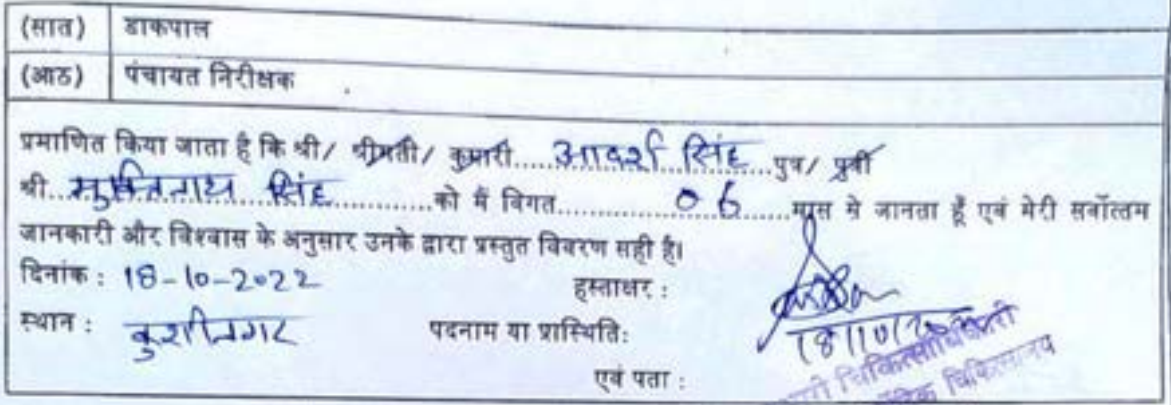 (सात) डाकपाल
(आठ) पंचायत निरीक्षक
प्रमाणित किया जाता है कि श्री/ श्रीमती/ कुमारी..... आदर्श सिंह .....पुत्र/ पुत्री
श्री... मुक्तिनाथ सिंह ............को मैं विगत............... 06 ......मास से जानता हूँ एवं मेरी सर्वोत्तम
जानकारी और विश्वास के अनुसार उनके द्वारा प्रस्तुत विवरण सही है।
दिनांक : 18-10-2022 हस्ताक्षर :
स्थान : कुशीनगर पदनाम या प्रास्थिति:
18/10/
चिकित्साधिकारी
एवं पता :